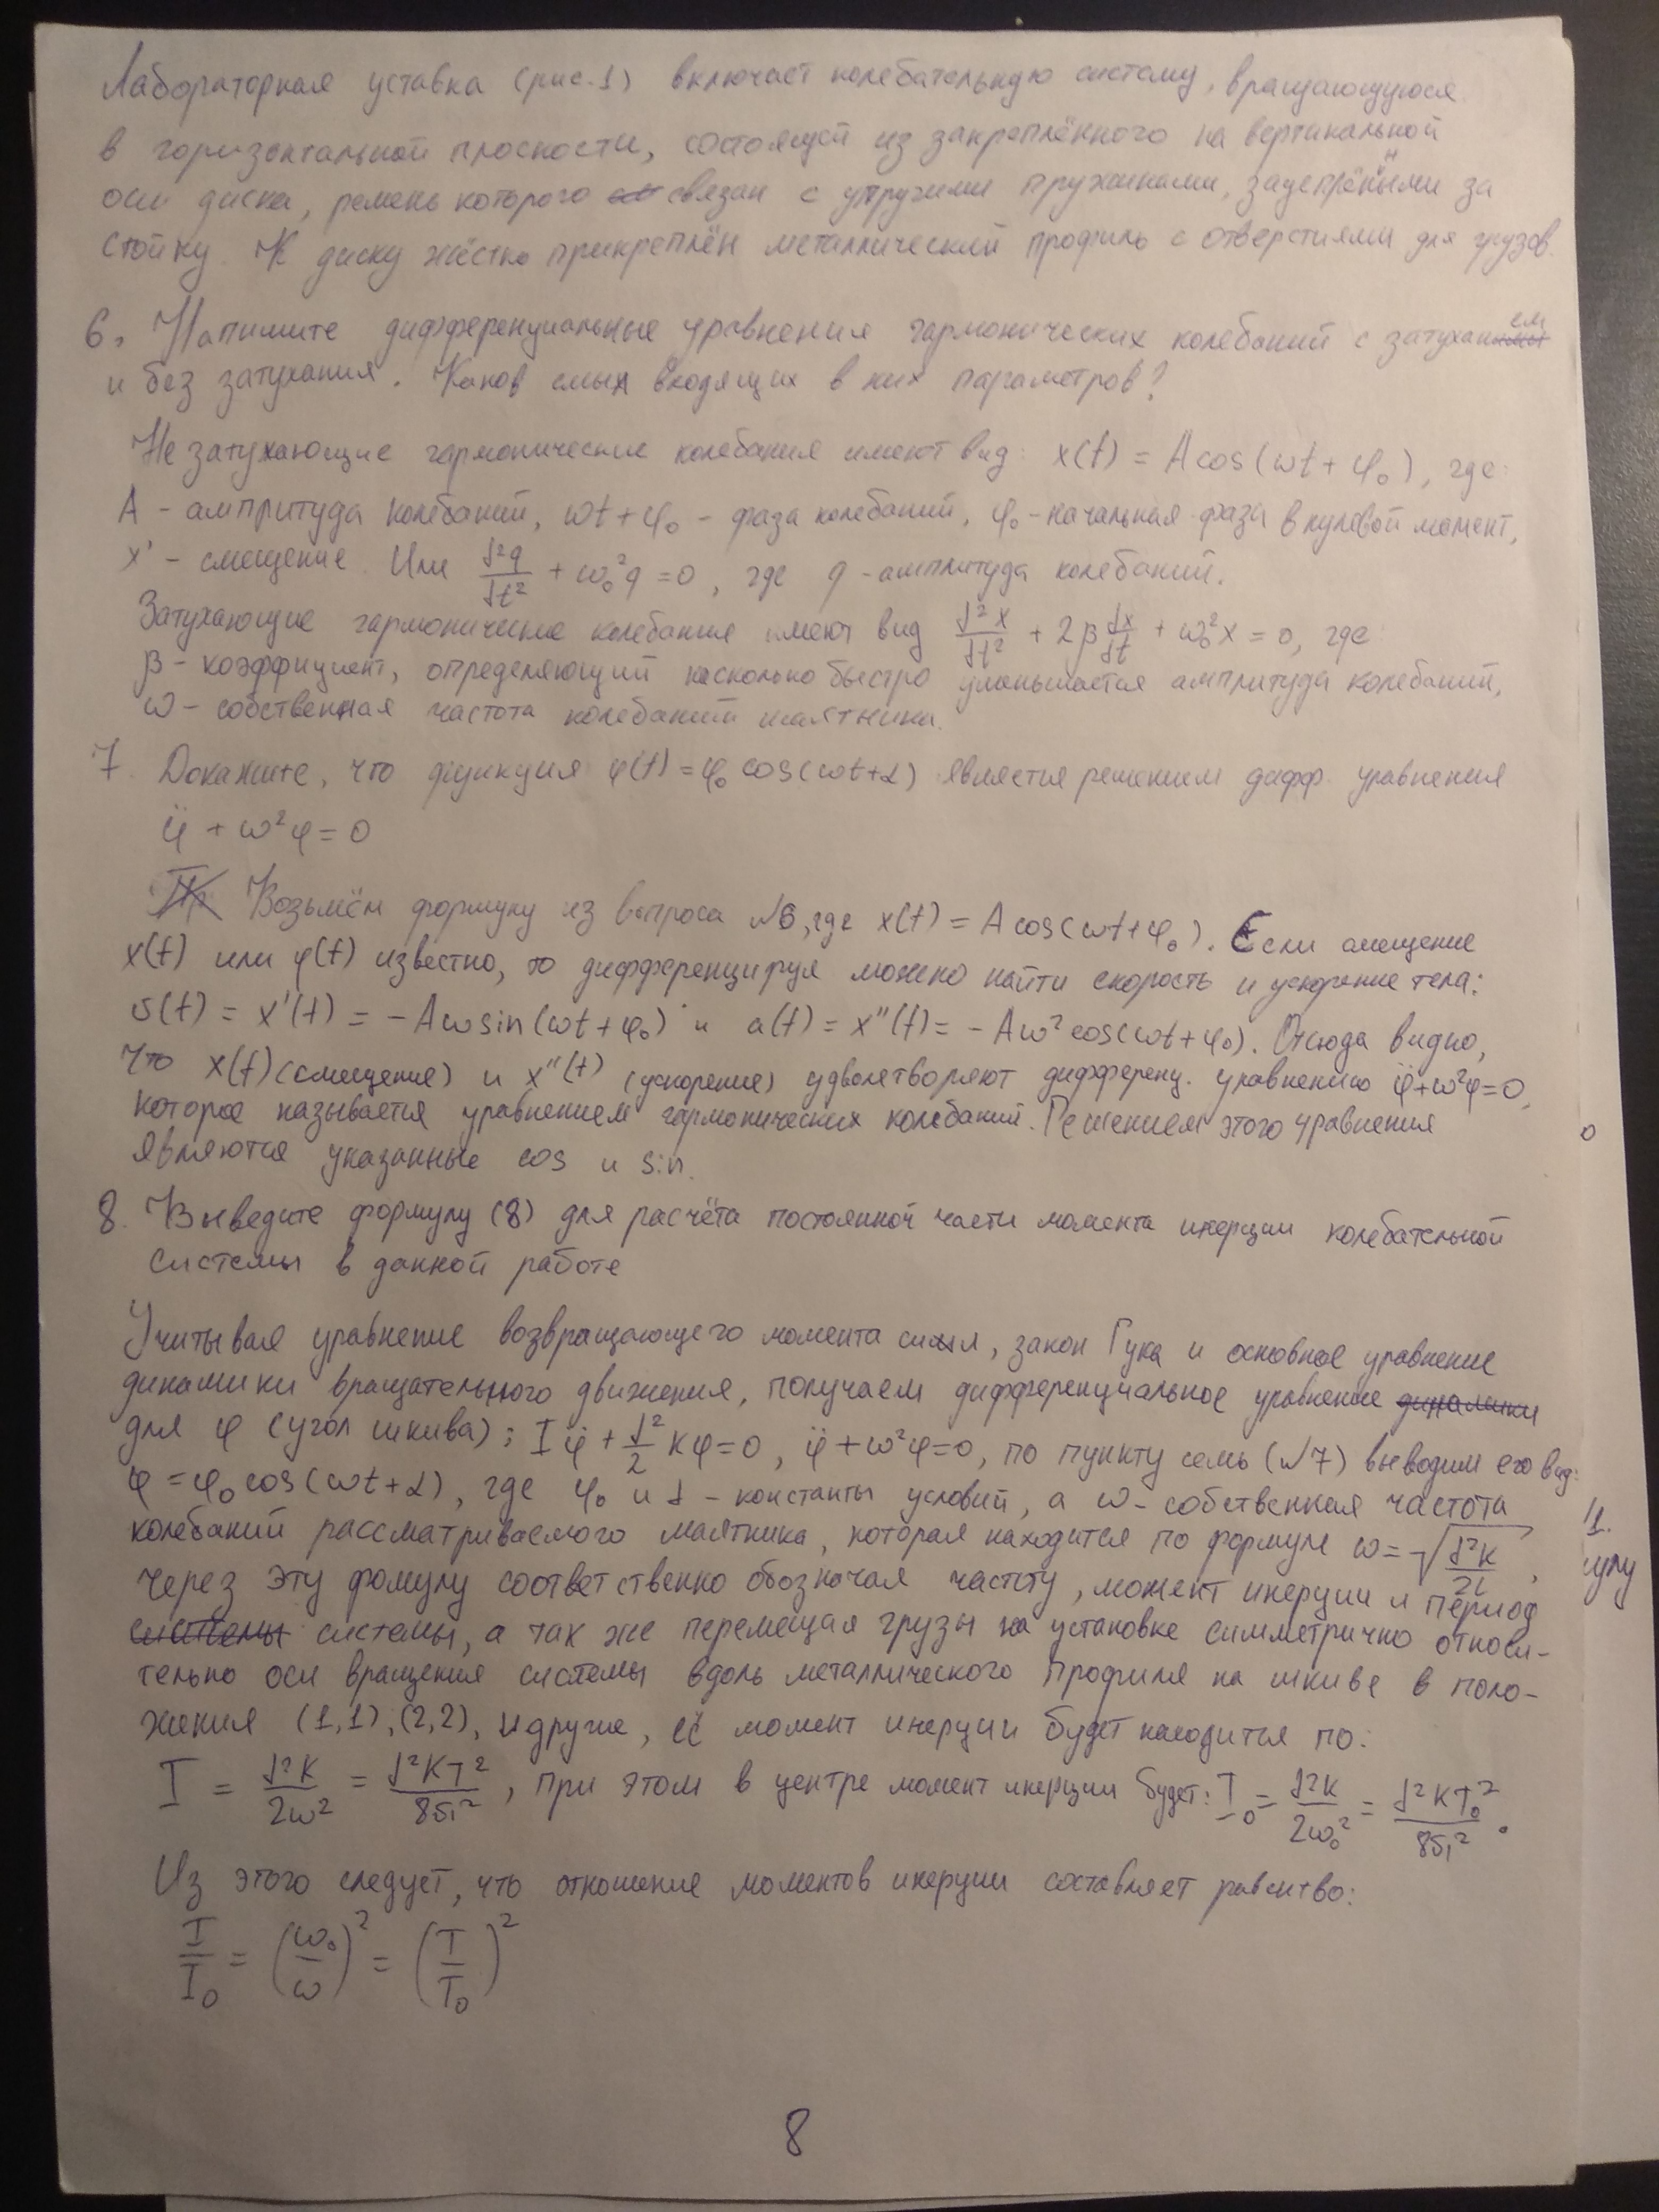 Лабораторная уставка (рис.1) включает колебательную систему, вращающуюся
в горизонтальной плоскости, состоящей из закреплённого на вертикальной
оси диска, ремень которого связан с упругими пружинами, зацеплёнными за
стойку. К диску жёстко прикреплён металлический профиль с отверстиями для грузов.
6. Напишите дифференциальные уравнения гармонических колебаний с затуханием
и без затухания. Каков смысл входящих в них параметров?
Не затухающие гармонические колебания имеют вид: x(t) = A cos(ωt + φ₀), где:
A - амплитуда колебаний, ωt + φ₀ - фаза колебаний, φ₀ - начальная фаза в нулевой момент,
x' - смещение. Или d²q/dt² + ω₀²q = 0, где q - амплитуда колебаний.
Затухающие гармонические колебания имеют вид d²x/dt² + 2β dx/dt + ω₀²x = 0, где:
β - коэффициент, определяющий насколько быстро уменьшается амплитуда колебаний,
ω - собственная частота колебаний маятника.
7. Докажите, что функция φ(t) = φ₀ cos(ωt+α) является решением дифф. уравнения
φ̈ + ω²φ = 0
Возьмём формулу из вопроса №6, где x(t) = A cos(ωt+φ₀). Если смещение
x(t) или φ(t) известно, то дифференцируя можно найти скорость и ускорение тела:
υ(t) = x'(t) = -Aω sin(ωt + φ₀) и a(t) = x''(t) = -Aω² cos(ωt + φ₀). Отсюда видно,
что x(t) (смещение) и x''(t) (ускорение) удволетворяют дифференц. уравнению φ̈+ω²φ=0,
которое называется уравнением гармонических колебаний. Решением этого уравнения
являются указанные cos и sin.
8. Выведите формулу (8) для расчёта постоянной части момента инерции колебательной
системы в данной работе
Учитывая уравнение возвращающего момента силы, закон Гука и основное уравнение
динамики вращательного движения, получаем дифференциальное уравнение динамики
для φ (угол шкива): Iφ̈ + d²/2 kφ = 0, φ̈ + ω²φ = 0, по пункту семь (№7) выводим его вид:
φ = φ₀ cos(ωt + α), где φ₀ и α - константы условий, а ω - собственная частота
колебаний рассматриваемого маятника, которая находится по формуле ω = √(d²k/2I),
через эту фомулу соответственно обозначая частоту, момент инерции и период
системы системы, а так же перемещая грузы на установке симметрично относи-
тельно оси вращения системы вдоль металлического профиля на шкиве в поло-
жения (1,1), (2,2), и другие, её момент инерции будет находится по:
I = d²k/2ω² = d²kT²/8π², при этом в центре момент инерции будет: I₀ = d²k/2ω₀² = d²kT₀²/8π².
Из этого следует, что отношение моментов инерции составляет равенство:
I/I₀ = (ω₀/ω)² = (T/T₀)²
8